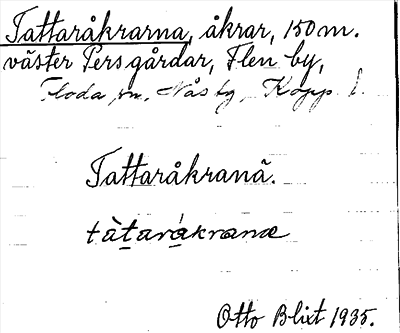 Tattaråkrarna, åkrar, 150 m.
väster Persgårdar, Flen by,
Floda sn, Nås tg, Kopp. l.
Tattaråkranä.
Otto Blixt 1935.